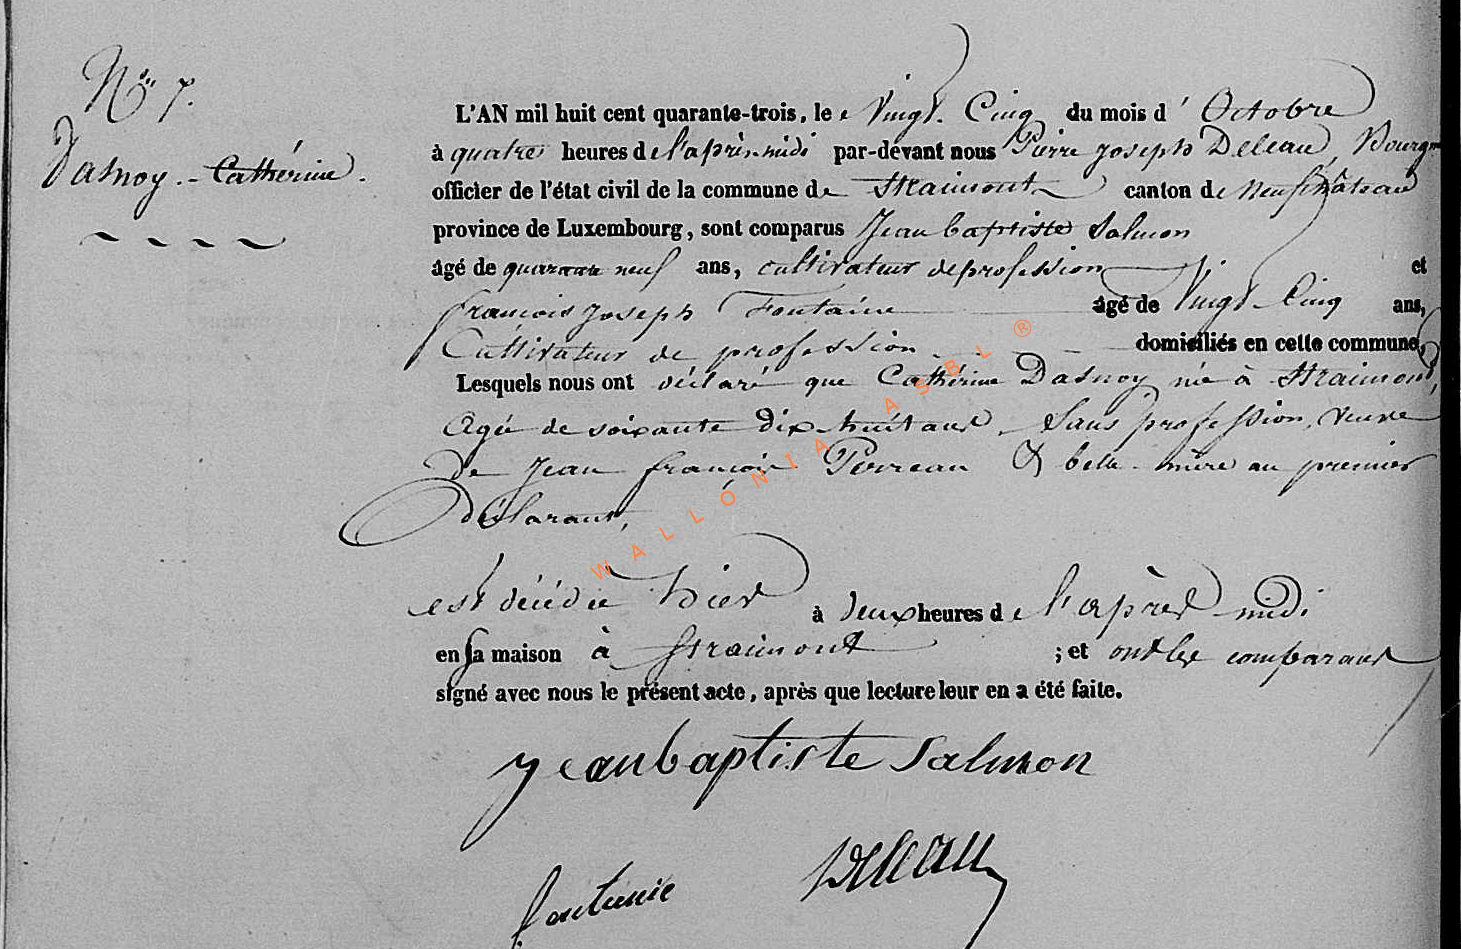 No 7.
Dasnoy Catherine.
L'AN mil huit cent quarante-trois, le Vingt Cinq du mois d' Octobre
à quatre heures de l'après-midi par-devant nous Pierre Joseph Deleau, Bourgm
officier de l'état civil de la commune de Straimont canton de Neufchâteau
province de Luxembourg, sont comparus Jean baptiste Salmon
âgé de quarante neuf ans, cultivateur de profession et
françois Joseph Fontaine âgé de Vingt Cinq ans,
Cultivateur de profession domiciliés en cette commune,
Lesquels nous ont déclaré que Cathérine Dasnoy née à Straimont,
Agée de soixante dix huit ans, Sans profession, veuve
De Jean françois Perreau & belle-mère au premier
déclarant,
est décédée hier à deux heures de l'après midi
en sa maison à Straimont ; et ont les comparans
signé avec nous le présent acte, après que lecture leur en a été faite.
Jean baptiste Salmon
fontenie
Deleau
WALLONIA ASBL ®